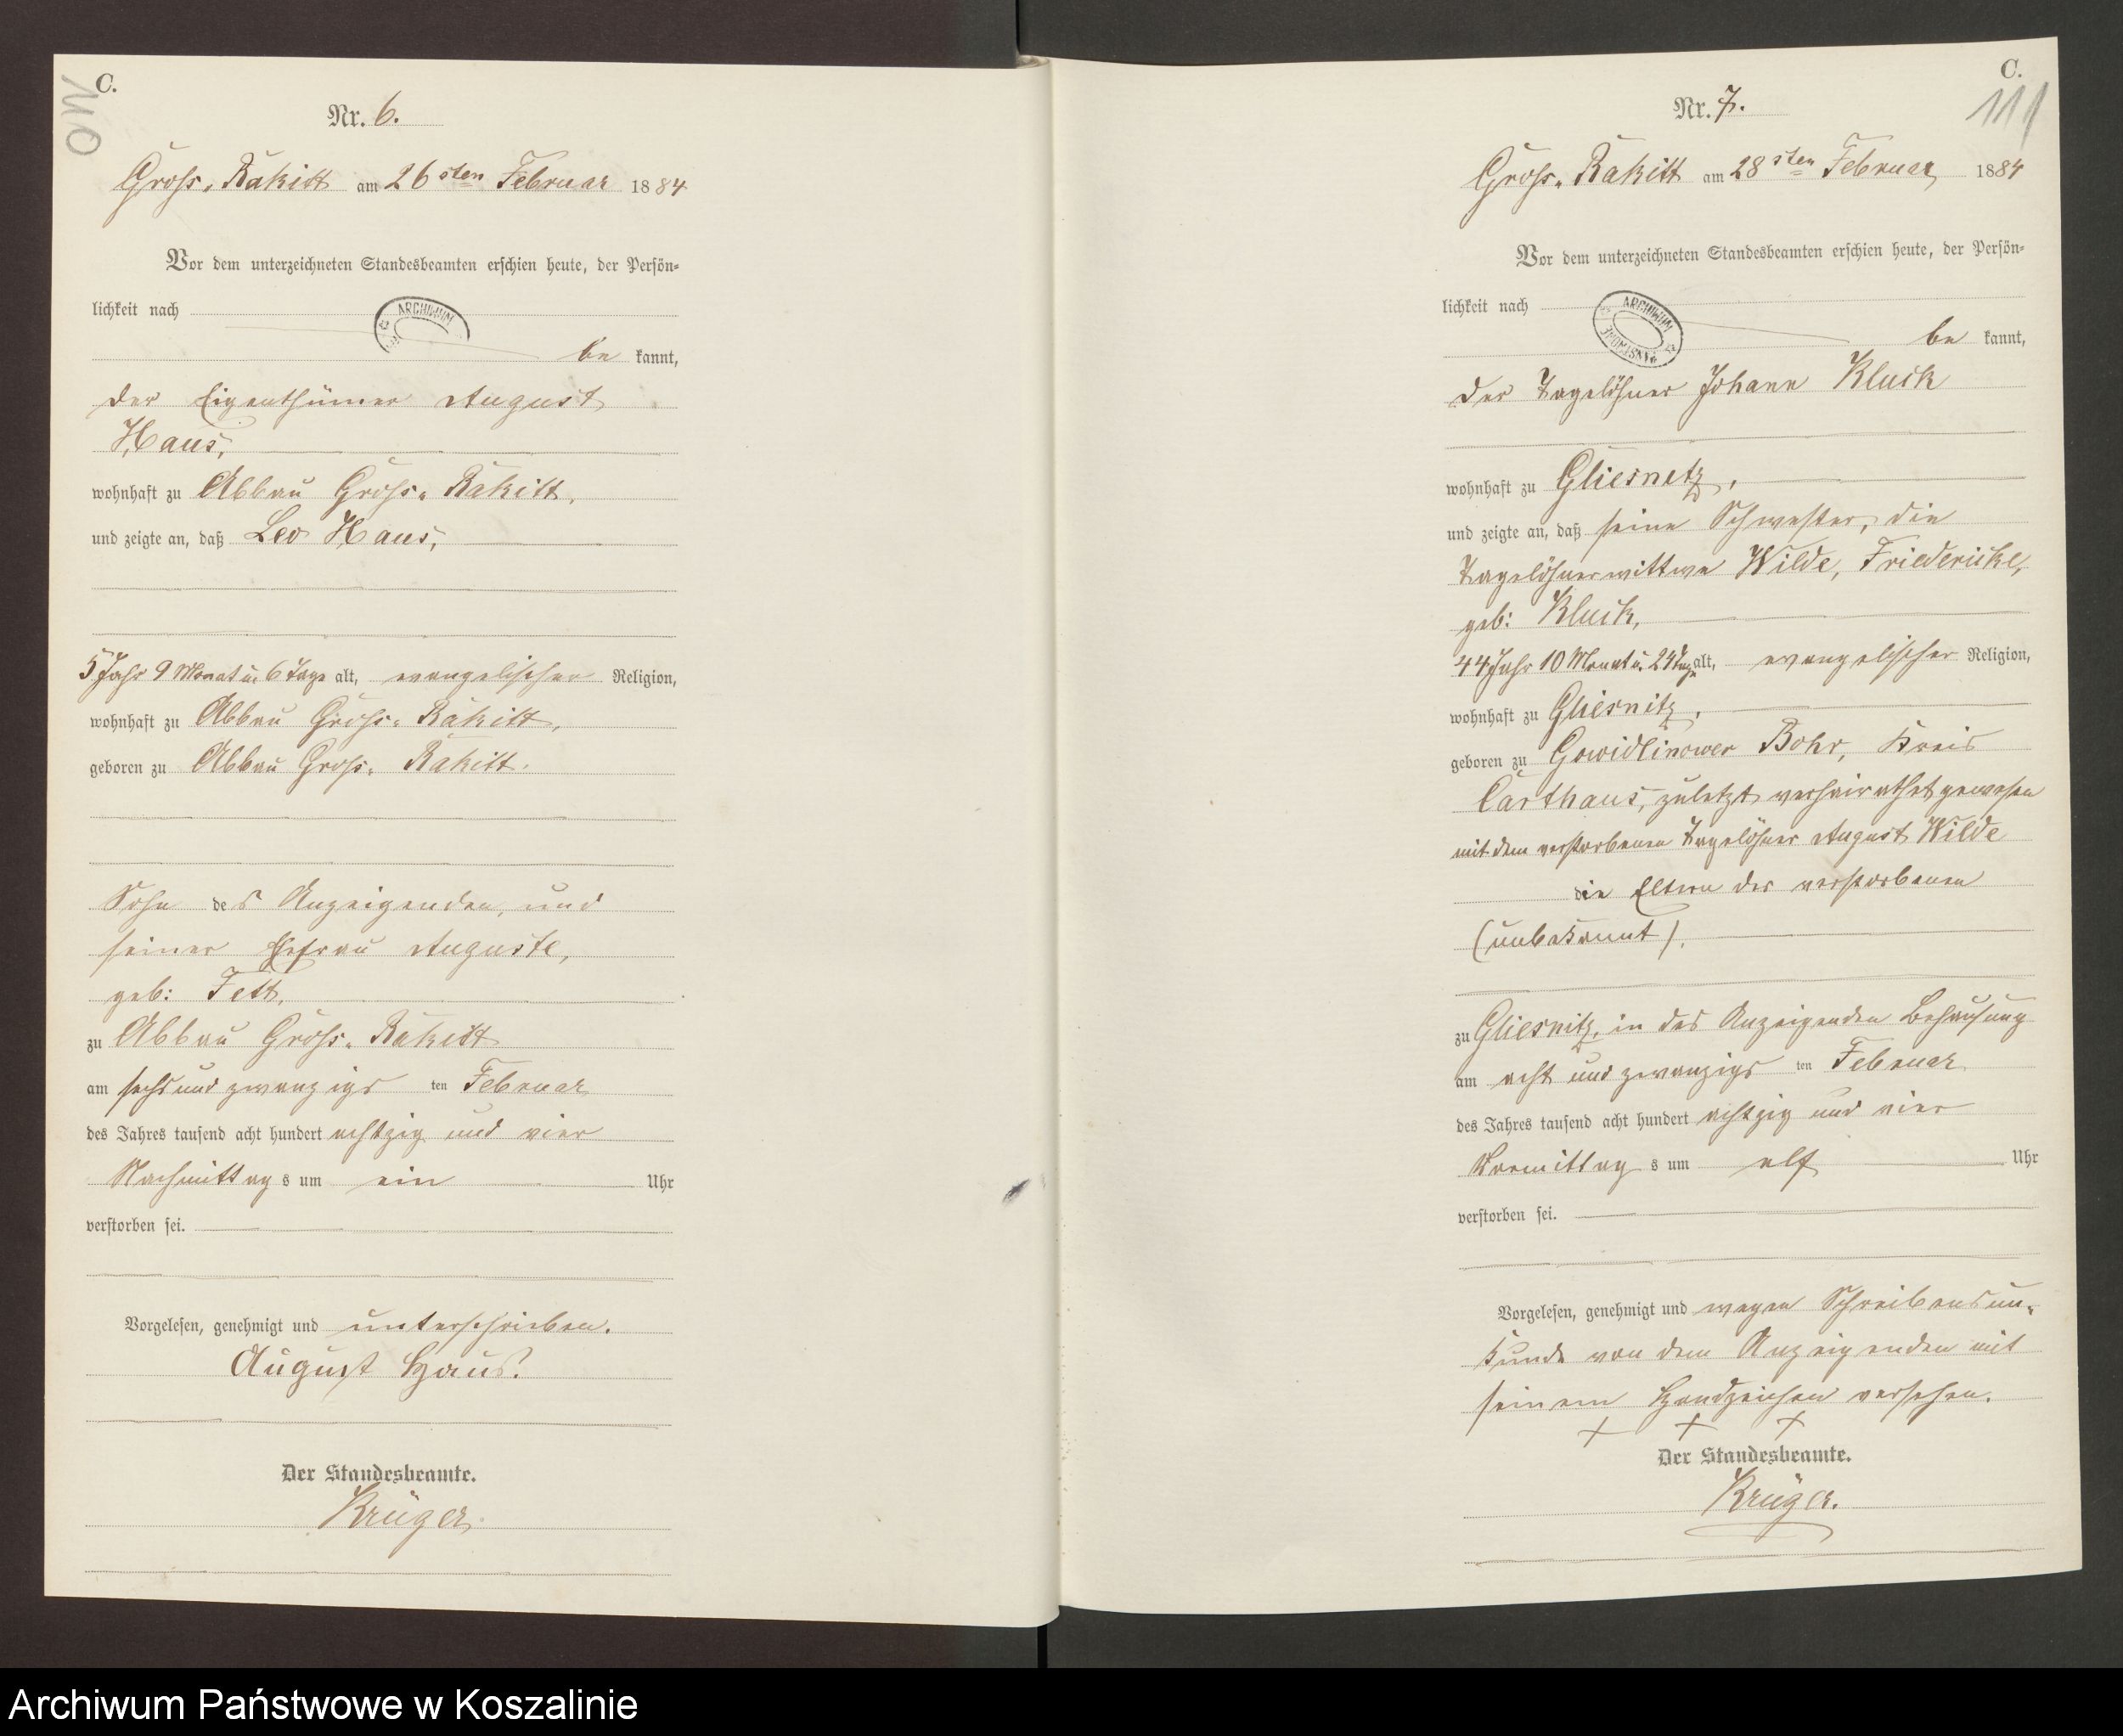 C.
110
Nr. 6.
Gross-Rakitt am 26sten Februar 1884
Vor dem unterzeichneten Standesbeamten erschien heute, der Persön-
lichkeit nach
ARCHIWUM
be kannt,
der Eigenthümer August
Haus,
wohnhaft zu Abbau Gross-Rakitt,
und zeigte an, daß Leo Haus,
5 Jahr 9 Monat u. 6 Tage alt, evangelischer Religion,
wohnhaft zu Abbau Gross-Rakitt,
geboren zu Abbau Gross-Rakitt.
Sohn des Anzeigenden, und
seiner Ehefrau Auguste,
geb: Fett,
zu Abbau Gross-Rakitt
am sechsundzwanzigs ten Februar
des Jahres tausend acht hundert achtzig und vier
Nachmittag s um ein Uhr
verstorben sei.
Vorgelesen, genehmigt und unterschrieben.
August Haus.
Der Standesbeamte.
Krüger.
C.
111
Nr. 7.
Gross-Rakitt am 28sten Februar 1884
Vor dem unterzeichneten Standesbeamten erschien heute, der Persön-
lichkeit nach
ARCHIWUM PAŃSTWOWE
be kannt,
der Tagelöhner Johann Kluck
wohnhaft zu Gliesnitz,
und zeigte an, daß seine Schwester, die
Tagelöhnerwittwe Wilde, Friedericke,
geb: Kluck,
44 Jahr 10 Monat u. 24 Tage alt, evangelischer Religion,
wohnhaft zu Gliesnitz,
geboren zu Gowidlinower Bohr, Kreis
Carthaus, zuletzt verheirathet gewesen
mit dem verstorbenen Tagelöhner August Wilde
die Eltern der verstorbenen
(unbekannt),
zu Gliesnitz, in des Anzeigenden Behausung
am acht und zwanzigs ten Februar
des Jahres tausend acht hundert achtzig und vier
Vormittag s um elf Uhr
verstorben sei.
Vorgelesen, genehmigt und wegen Schreibensun-
kunde von dem Anzeigenden mit
seinem Handzeichen versehen.
+ + +
Der Standesbeamte.
Krüger.
Archiwum Państwowe w Koszalinie